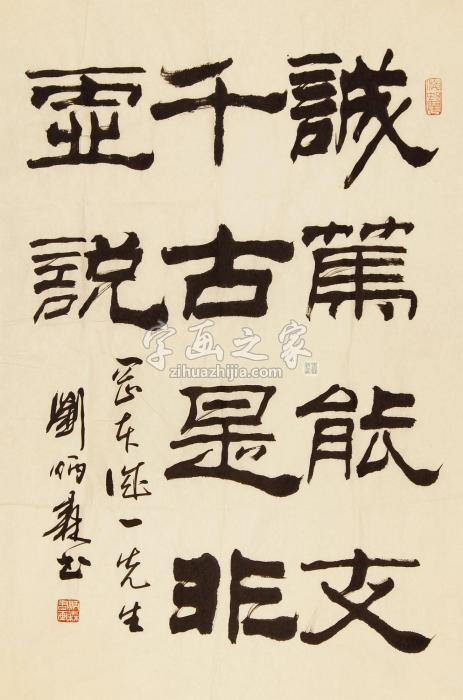 誠篤能支
千古是非
虛說
岡本誠一先生
劉炳森书
字画之家
zihuazhijia.com